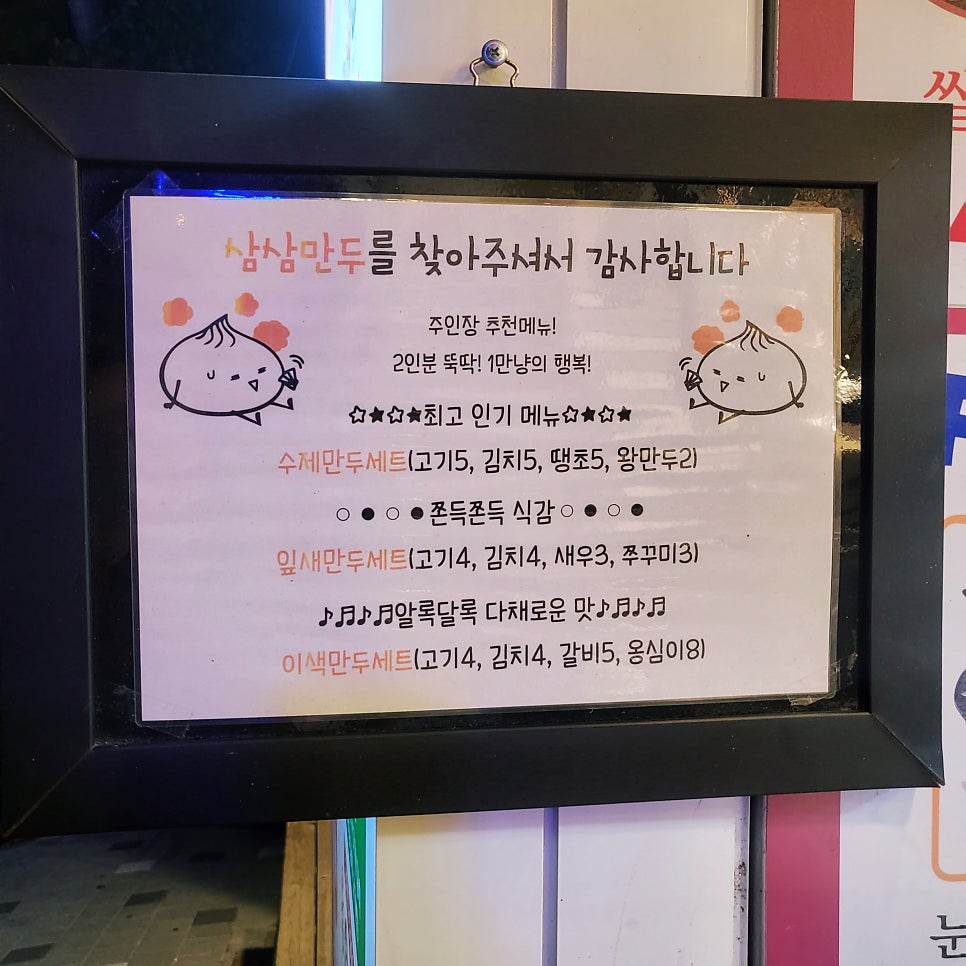 삼삼만두를 찾아주셔서 감사합니다
주인장 추천메뉴!
2인분 뚝딱! 1만냥의 행복!
☆★☆★최고 인기 메뉴☆★☆★
수제만두세트(고기5, 김치5, 땡초5, 왕만두2)
○ ● ○ ●쫀득쫀득 식감○ ● ○ ●
잎새만두세트(고기4, 김치4, 새우3, 쭈꾸미3)
♪♬♪♬알록달록 다채로운 맛♪♬♪♬
이색만두세트(고기4, 김치4, 갈비5, 옹심이8)
쌀
눈